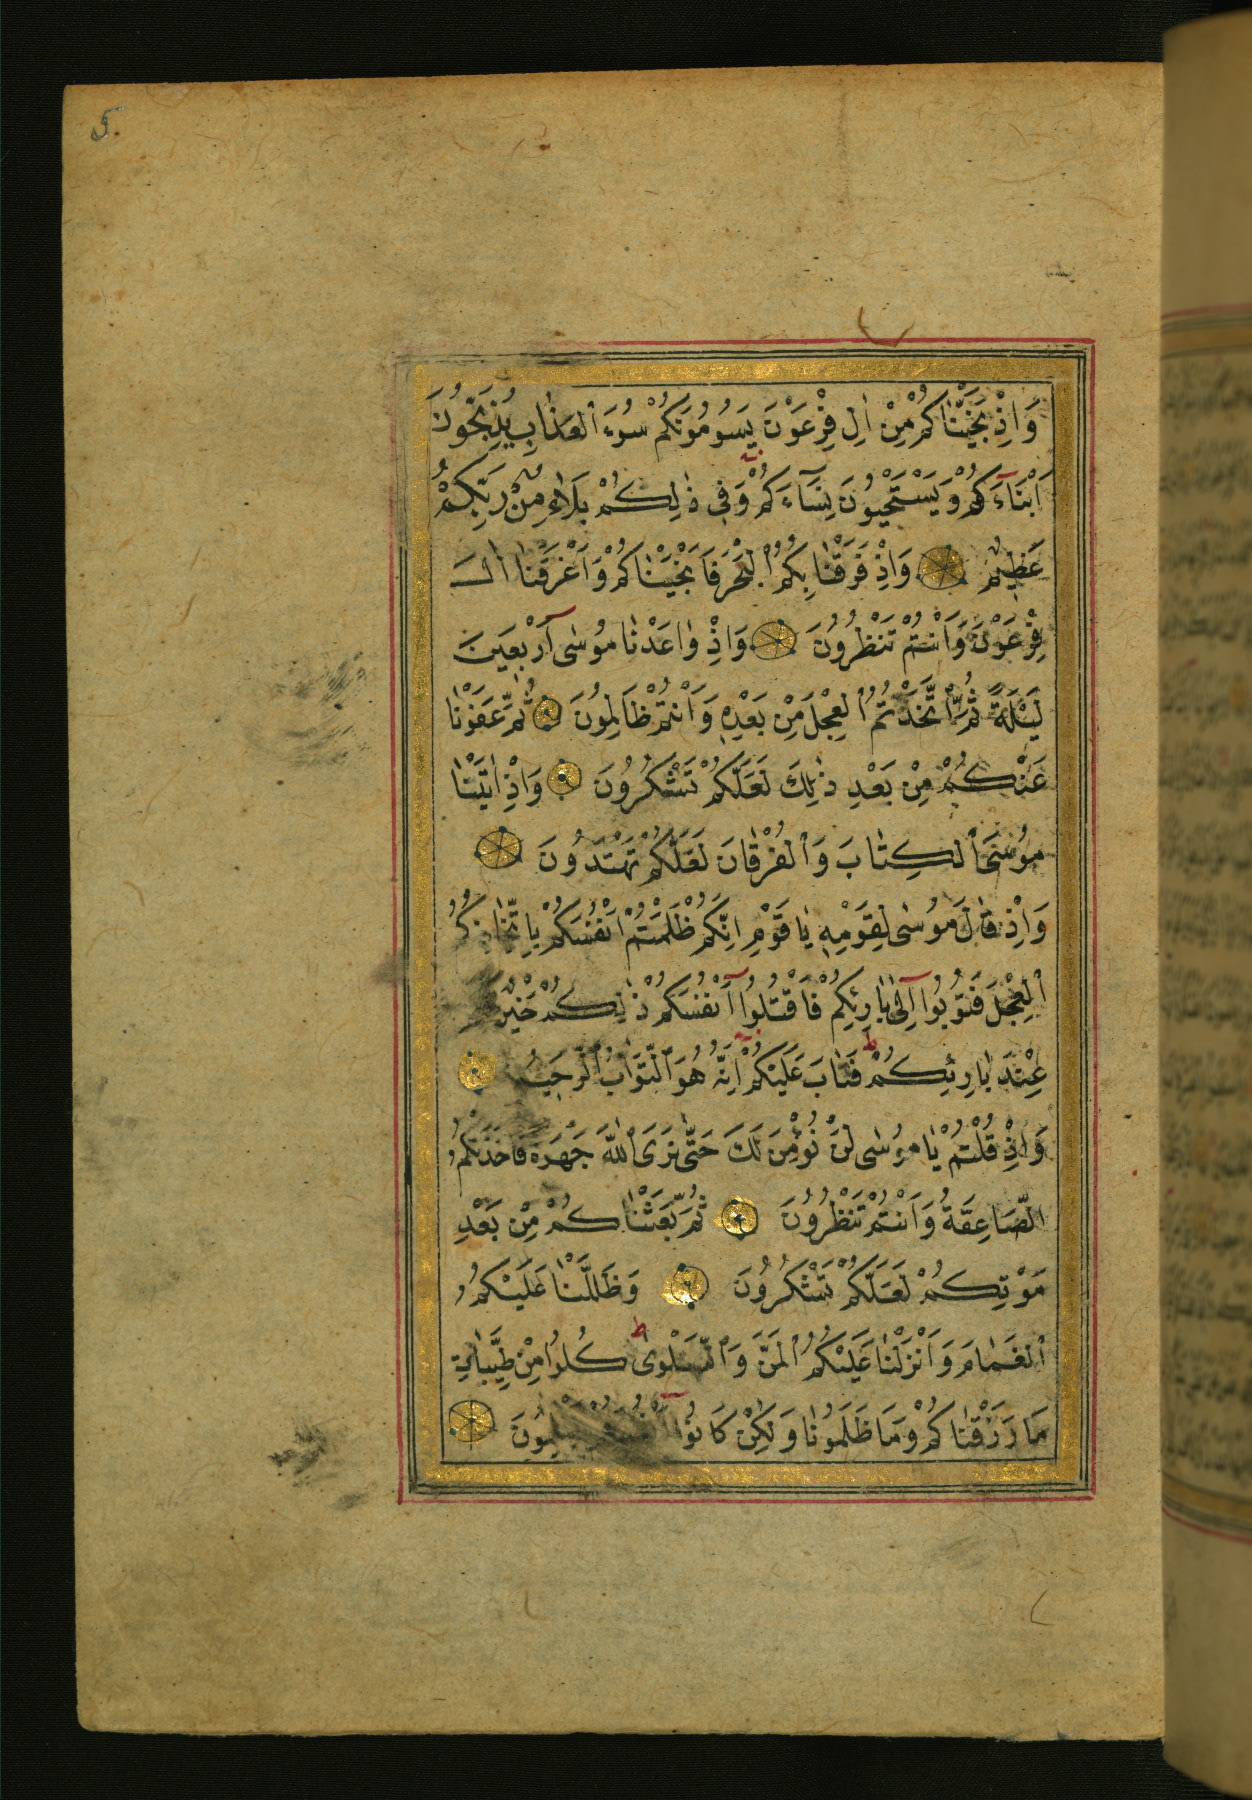 5
وَاِذْ نَجَّيْنَاكُمْ مِنْ اٰلِ فِرْعَوْنَ يَسُومُونَكُمْ سُوءَ الْعَذَابِ يُذَبِّحُونَ
اَبْنَاءَكُمْ وَيَسْتَحْيُونَ نِسَاءَكُمْ وَفِى ذٰلِكُمْ بَلَاءٌ مِنْ رَبِّكُمْ
عَظِيمٌ وَاِذْ فَرَقْنَا بِكُمُ الْبَحْرَ فَاَنْجَيْنَاكُمْ وَاَغْرَقْنَا اٰلَ
فِرْعَوْنَ وَاَنْتُمْ تَنْظُرُونَ وَاِذْ وَاعَدْنَا مُوسٰى اَرْبَعِينَ
لَيْلَةً ثُمَّ اتَّخَذْتُمُ الْعِجْلَ مِنْ بَعْدِهٖ وَاَنْتُمْ ظَالِمُونَ ثُمَّ عَفَوْنَا
عَنْكُمْ مِنْ بَعْدِ ذٰلِكَ لَعَلَّكُمْ تَشْكُرُونَ وَاِذْ اٰتَيْنَا
مُوسَى الْكِتَابَ وَالْفُرْقَانَ لَعَلَّكُمْ تَهْتَدُونَ
وَاِذْ قَالَ مُوسٰى لِقَوْمِهٖ يَا قَوْمِ اِنَّكُمْ ظَلَمْتُمْ اَنْفُسَكُمْ بِاتِّخَاذِكُمُ
الْعِجْلَ فَتُوبُوا اِلٰى بَارِئِكُمْ فَاقْتُلُوا اَنْفُسَكُمْ ذٰلِكُمْ خَيْرٌ
عِنْدَ بَارِئِكُمْ فَتَابَ عَلَيْكُمْ اِنَّهُ هُوَ التَّوَّابُ الرَّحِيمُ
وَاِذْ قُلْتُمْ يَا مُوسٰى لَنْ نُؤْمِنَ لَكَ حَتّٰى نَرَى اللّٰهَ جَهْرَةً فَاَخَذَتْكُمُ
الصَّاعِقَةُ وَاَنْتُمْ تَنْظُرُونَ ثُمَّ بَعَثْنَاكُمْ مِنْ بَعْدِ
مَوْتِكُمْ لَعَلَّكُمْ تَشْكُرُونَ وَظَلَّلْنَا عَلَيْكُمُ
الْغَمَامَ وَاَنْزَلْنَا عَلَيْكُمُ الْمَنَّ وَالسَّلْوٰى كُلُوا مِنْ طَيِّبَاتِ
مَا رَزَقْنَاكُمْ وَمَا ظَلَمُونَا وَلٰكِنْ كَانُوا